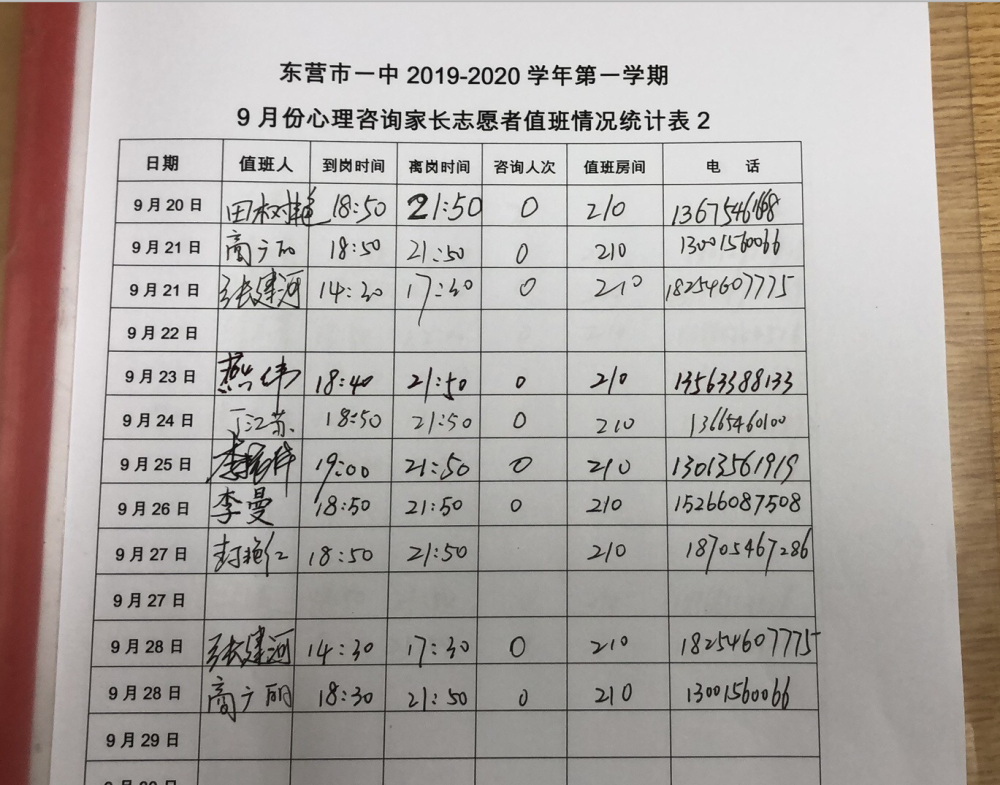 东营市一中 2019-2020 学年第一学期
9 月份心理咨询家长志愿者值班情况统计表 2
日期 值班人 到岗时间 离岗时间 咨询人次 值班房间 电 话
9 月 20 日 田树艳 18:50 21:50 0 210 13675461668
9 月 21 日 商广丽 18:50 21:50 0 210 13001560066
9 月 21 日 张建河 14:30 17:30 0 210 18254607775
9 月 22 日
9 月 23 日 燕伟 18:40 21:50 0 210 13563388133
9 月 24 日 丁江苏 18:50 21:50 0 210 13665460100
9 月 25 日 19:00 21:50 0 210 13013561919
9 月 26 日 李曼 18:50 21:50 0 210 15266087508
9 月 27 日 封艳仁 18:50 21:50 210 18705467286
9 月 27 日
9 月 28 日 张建河 14:30 17:30 0 210 18254607775
9 月 28 日 商广丽 18:30 21:50 0 210 13001560066
9 月 29 日